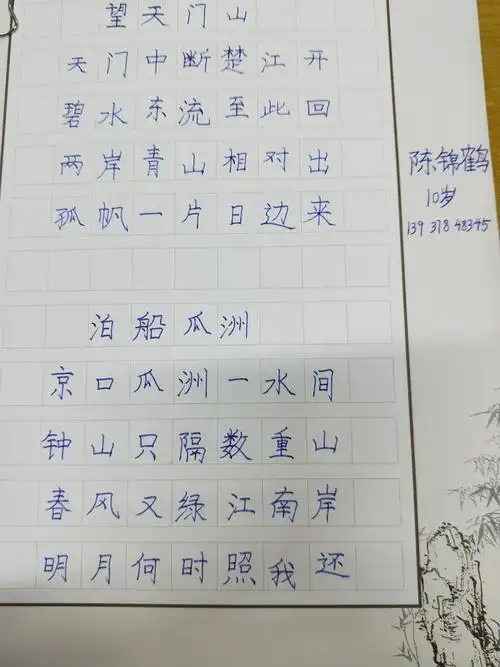 望天门山
天门中断楚江开
碧水东流至此回
两岸青山相对出
孤帆一片日边来
泊船瓜洲
京口瓜洲一水间
钟山只隔数重山
春风又绿江南岸
明月何时照我还
陈锦鹤
10岁
139 378 48345